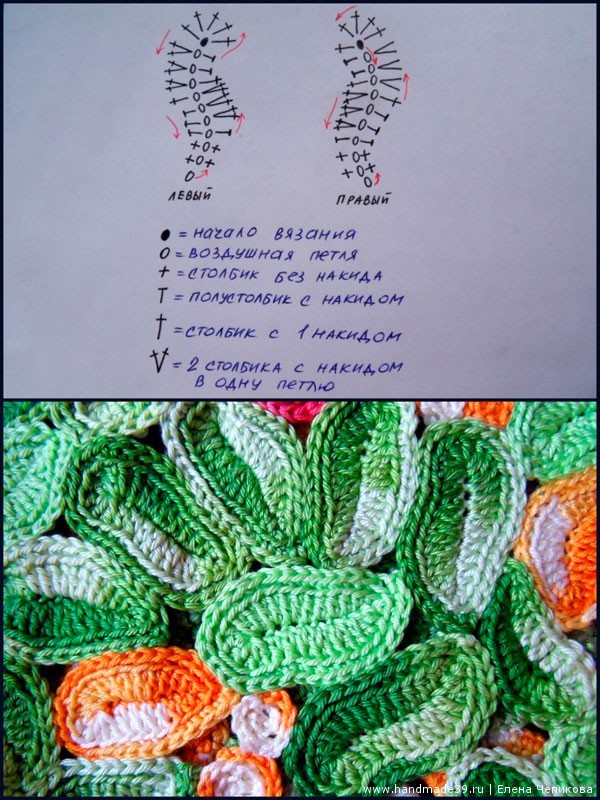 ЛЕВЫЙ ПРАВЫЙ
= НАЧАЛО ВЯЗАНИЯ
= ВОЗДУШНАЯ ПЕТЛЯ
= СТОЛБИК БЕЗ НАКИДА
= ПОЛУСТОЛБИК С НАКИДОМ
= СТОЛБИК С 1 НАКИДОМ
= 2 СТОЛБИКА С НАКИДОМ
В ОДНУ ПЕТЛЮ
www.handmade39.ru | Елена Чепикова